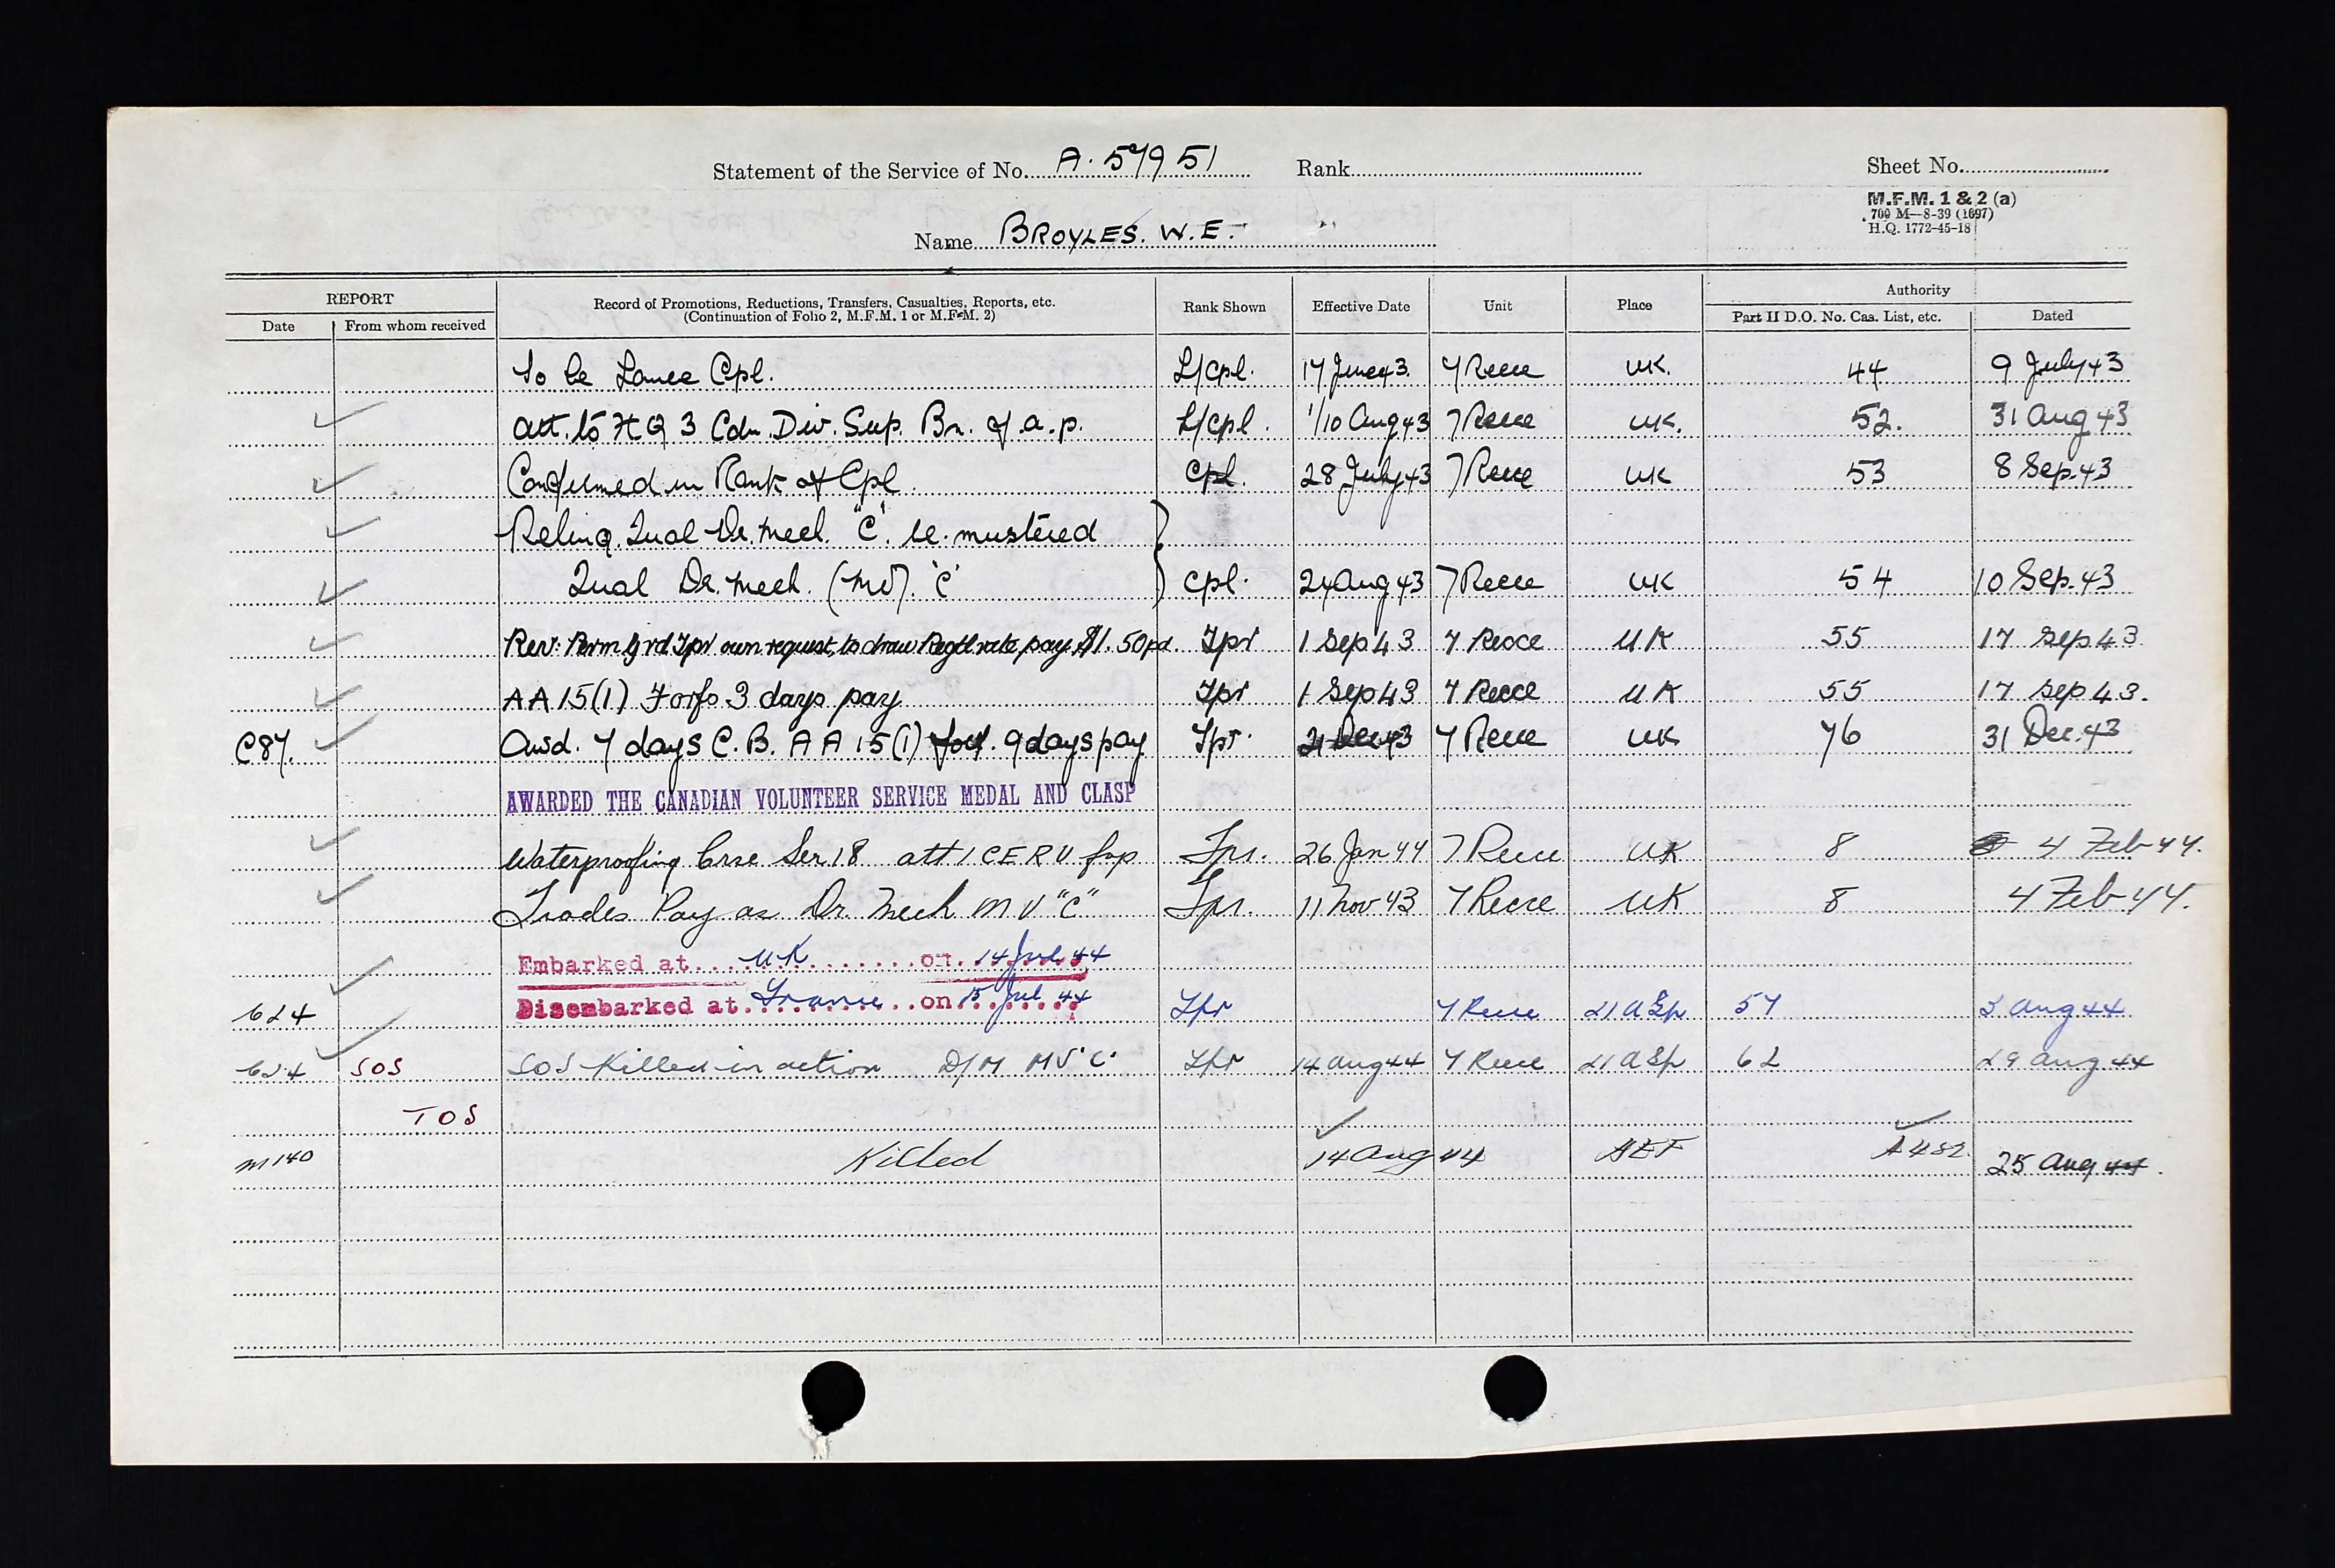 Statement of the Service of No. A. 57951 Rank Sheet No.
M.F.M. 1 & 2 (a)
700 M—8-39 (1697)
H.Q. 1772-45-18
Name BROYLES. W. E.
REPORT Record of Promotions, Reductions, Transfers, Casualties, Reports, etc. Rank Shown Effective Date Unit Place Authority
Date From whom received (Continuation of Folio 2, M.F.M. 1 or M.F.M. 2) Part II D.O. No. Cas. List, etc. Dated
To be Lance Cpl. L/Cpl. 17 June 43. 7 Recce UK. 44 9 July 43
Att. to H Q 3 Cdn. Div. Sup. Bn. f.a.p. L/Cpl. 1/10 Aug 43 7 Recce UK. 52. 31 Aug 43
Confirmed in Rank of Cpl. Cpl. 28 July 43 7 Recce UK 53 8 Sep. 43
Relinq. Qual Dr. Mech. "C". re-mustered
Qual Dr. Mech. (MV). 'C' Cpl. Aug 43 7 Recce UK 54 10 Sep. 43
Rev: Perm Grd Tpr own request, to draw Regtl rate pay $1.50 pd. Tpr 1 Sep 43 7 Recce UK 55 17 Sep 43.
AA 15(1) Forfs 3 days pay Tpr 1 Sep 43 7 Recce UK 55 17 Sep 43.
C87. Awd. 7 days C.B. AA 15(1) forf. 9 days pay Tpr. 21 Dec 43 7 Recce UK 76 31 Dec. 43
AWARDED THE CANADIAN VOLUNTEER SERVICE MEDAL AND CLASP
Waterproofing Crse Ser 18 att 1 CERU fap Tpr. 26 Jan 44 7 Recce UK 8 4 Feb 44.
Trades Pay as Dr. Mech MV "C" Tpr. 11 Nov 43 7 Recce UK 8 4 Feb 44.
Embarked at UK on 14 Jul 44
624 Disembarked at France on 15 Jul 44 Tpr 7 Recce 21 A Gp 57 3 Aug 44
SOS SOS Killed in action D/M MV 'C' Tpr 14 Aug 44 7 Recce 21 A Gp 62 29 Aug 44
TOS
M140 Killed 14 Aug 44 AEF A482 25 Aug 44.